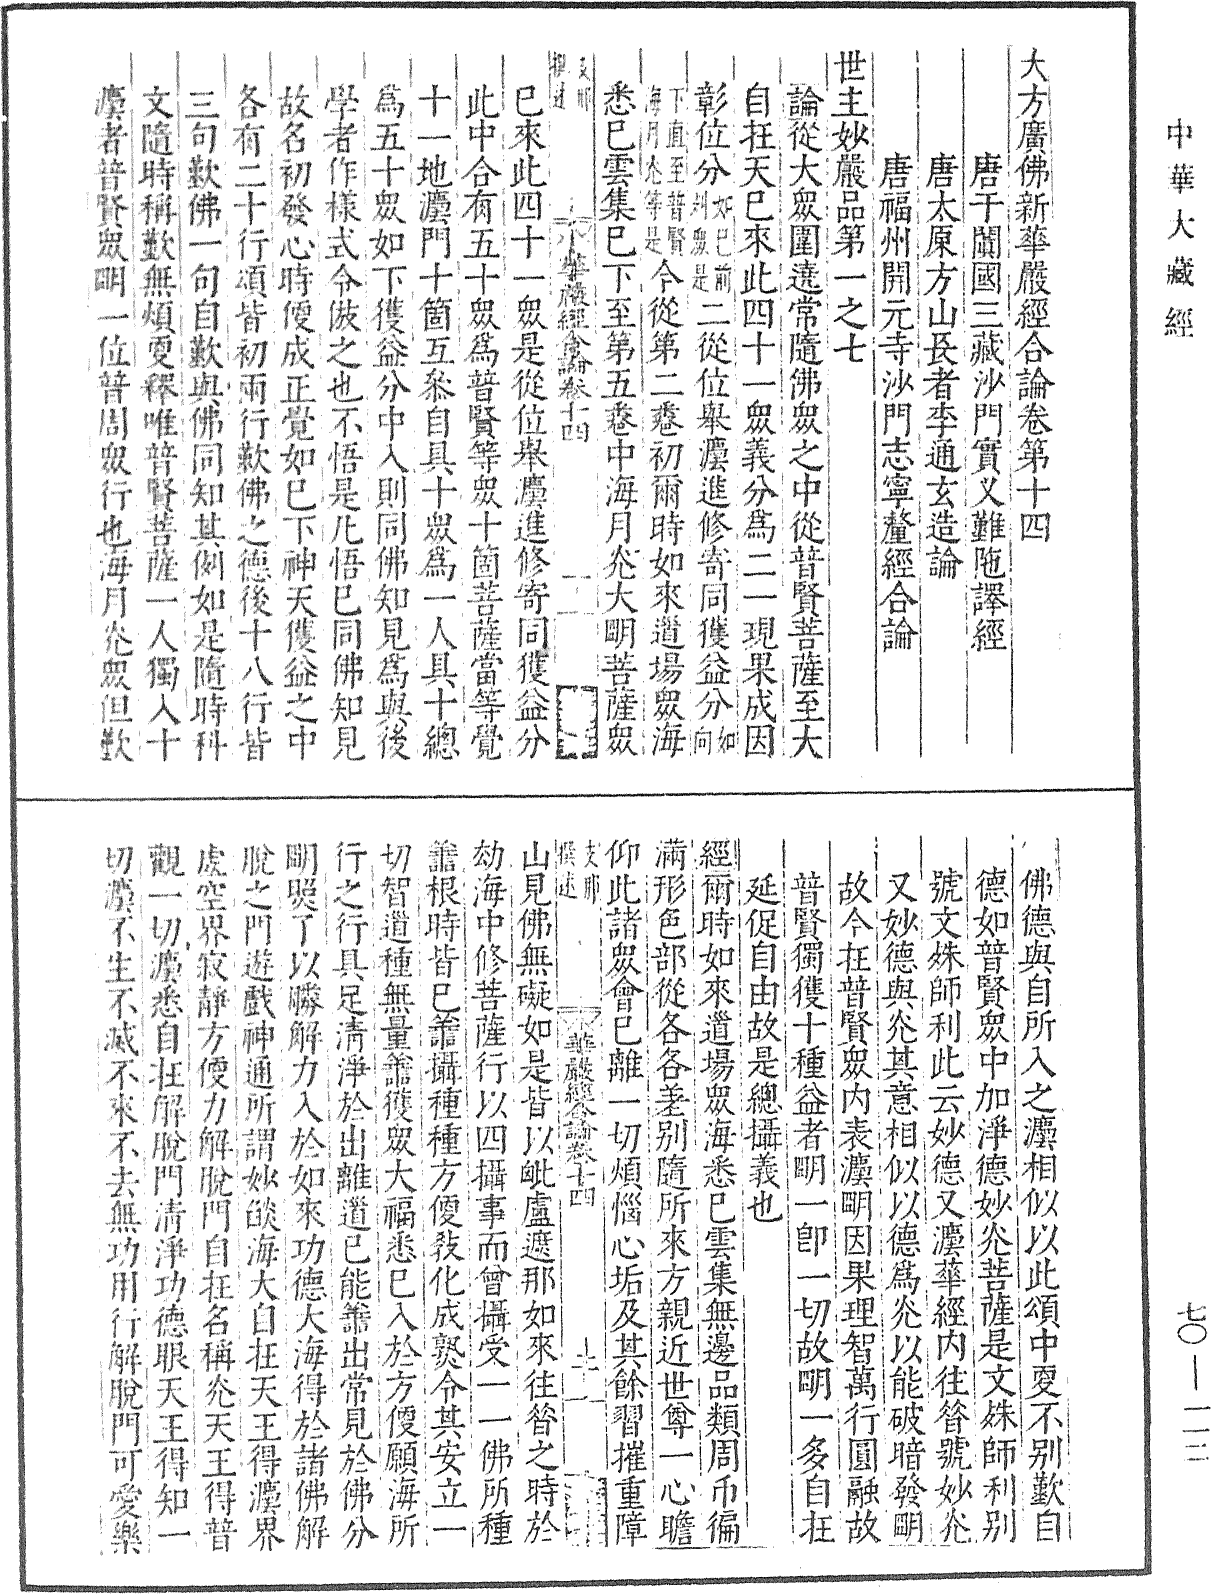 中華大藏經
大方廣佛新華嚴經合論卷第十四
唐于闐國三藏沙門實叉難陁譯經
唐太原方山長者李通玄造論
唐福州開元寺沙門志寧釐經合論
世主妙嚴品第一之七
論從大眾圍遶常隨佛眾之中從普賢菩薩至大
自在天已來此四十一眾義分為二一現果成因
彰位分如已前列眾是二從位舉灋進修寄同獲益分如向
下直至普賢海月光等是今從第二卷初爾時如來道場眾海
悉已雲集已下至第五卷中海月光大明菩薩眾
支那撰述
華嚴經合論卷十四
已來此四十一眾是從位舉灋進修寄同獲益分
此中合有五十眾為普賢等眾十箇菩薩當等覺
十一地灋門十箇互叅自具十眾為一人具十總
為五十眾如下獲益分中入則同佛知見為與後
學者作樣式令倣之也不悟是凡悟已同佛知見
故名初發心時便成正覺如已下神天獲益之中
各有二十行頌皆初兩行歎佛之德後十八行皆
三句歎佛一句自歎與佛同知其例如是隨時科
文隨時稱歎無煩更釋唯普賢菩薩一人獨入十
灋者普賢眾明一位普周眾行也海月光眾但歎
佛德與自所入之灋相似以此頌中更不別歎自
德如普賢眾中加淨德妙光菩薩是文殊師利別
號文殊師利此云妙德又灋華經內往昝號妙光
又妙德與光其意相似以德為光以能破暗發明
故今在普賢眾內表灋明因果理智萬行圓融故
普賢獨獲十種益者明一即一切故明一多自在
延促自由故是總攝義也
經爾時如來道場眾海悉已雲集無邊品類周帀徧
滿形色部從各各差別隨所來方親近世尊一心瞻
仰此諸眾會已離一切煩惱心垢及其餘習摧重障
支那撰述
華嚴經合論卷十四
山見佛無礙如是皆以毗盧遮那如來往昝之時於
劫海中修菩薩行以四攝事而曾攝受一一佛所種
譱根時皆已譱攝種種方便敎化成熟令其安立一
切智道種無量譱獲眾大福悉已入於方便願海所
行之行具足清淨於出離道已能譱出常見於佛分
明照了以勝解力入於如來功德大海得於諸佛解
脫之門遊戲神通所謂妙燄海大自在天王得灋界
虛空界寂靜方便力解脫門自在名稱光天王得普
觀一切灋悉自在解脫門清淨功德眼天王得知一
切灋不生不滅不來不去無功用行解脫門可愛樂
七〇—一一二